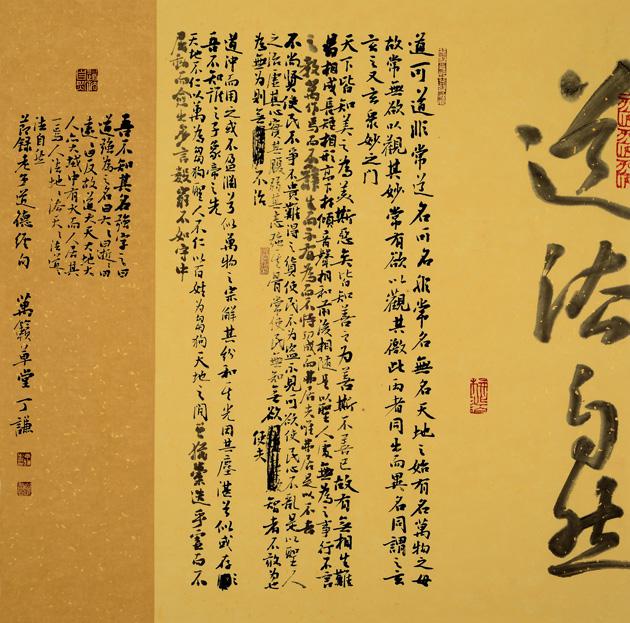 道法自然
道可道非常道名可名非常名無名天地之始有名萬物之母
故常無欲以觀其妙常有欲以觀其徼此兩者同出而異名同謂之玄
玄之又玄眾妙之門
天下皆知美之為美斯惡矣皆知善之為善斯不善已故有無相生難
易相成長短相形高下相傾音聲相和前後相隨是以聖人處無為之事行不言
之教萬物作焉而不辭生而不有為而不恃功成而弗居夫唯弗居是以不去
不尚賢使民不爭不貴難得之貨使民不為盜不見可欲使民心不亂是以聖人
之治虛其心實其腹弱其志強其骨常使民無知無欲使夫智者不敢為也
為無為則無不治
道沖而用之或不盈淵兮似萬物之宗解其紛和其光同其塵湛兮似或存
吾不知誰之子象帝之先
天地不仁以萬物為芻狗聖人不仁以百姓為芻狗天地之間其猶橐籥乎虛而不
屈動而愈出多言數窮不如守中
吾不知其名強字之曰
道強為之名曰大大曰逝逝曰
遠遠曰反故道大天大地大
人亦大域中有大而人居其
一焉人法地地法天天法道道
法自然
節錄老子道德經句 萬籟草堂 丁謙